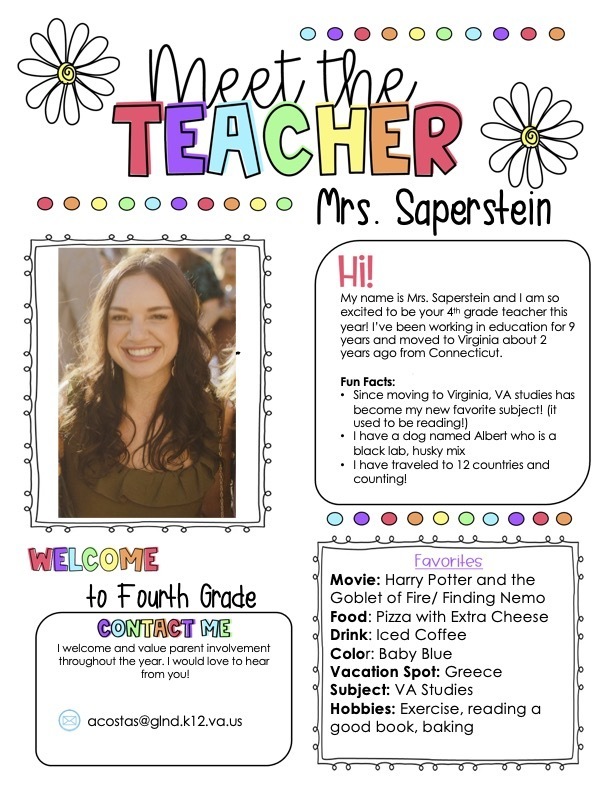 Meet the
TEACHER
Mrs. Saperstein
Hi!
My name is Mrs. Saperstein and I am so
excited to be your 4th grade teacher this
year! I’ve been working in education for 9
years and moved to Virginia about 2
years ago from Connecticut.
Fun Facts:
• Since moving to Virginia, VA studies has
become my new favorite subject! (it
used to be reading!)
• I have a dog named Albert who is a
black lab, husky mix
• I have traveled to 12 countries and
counting!
WELCOME
to Fourth Grade
CONTACT ME
I welcome and value parent involvement
throughout the year. I would love to hear
from you!
acostas@glnd.k12.va.us
Favorites
Movie: Harry Potter and the
Goblet of Fire/ Finding Nemo
Food: Pizza with Extra Cheese
Drink: Iced Coffee
Color: Baby Blue
Vacation Spot: Greece
Subject: VA Studies
Hobbies: Exercise, reading a
good book, baking